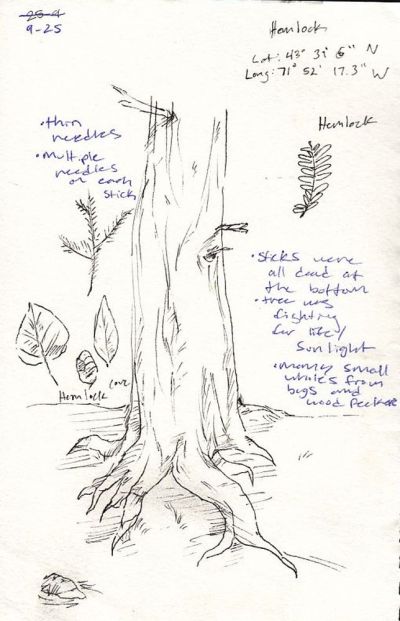 25-4
9-25
Hemlock
Lat: 43° 31' 6" N
Long: 71° 52' 17.3" W
Hemlock
• thin
needles
• Multiple
needles
on each
stick
• Sticks were
all dead at
the bottom
• tree was
fighting
for life/
sunlight
• many small
wholes from
bugs and
wood pecker
Hemlock
cone